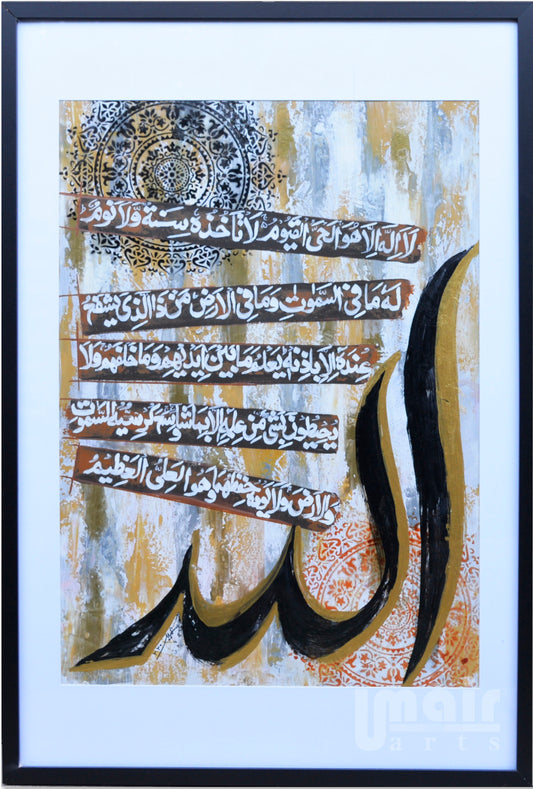 لَا إِلٰهَ إِلَّا هُوَ الْحَيُّ الْقَيُّومُ لَا تَأْخُذُهُ سِنَةٌ وَّلَا نَوْمٌ
لَهُ مَا فِي السَّمٰوٰتِ وَمَا فِي الْأَرْضِ مَنْ ذَا الَّذِي يَشْفَعُ
عِنْدَهُ إِلَّا بِإِذْنِهِ يَعْلَمُ مَا بَيْنَ أَيْدِيهِمْ وَمَا خَلْفَهُمْ وَلَا
يُحِيطُونَ بِشَيْءٍ مِّنْ عِلْمِهِ إِلَّا بِمَا شَاءَ وَسِعَ كُرْسِيُّهُ السَّمٰوٰتِ
وَالْأَرْضَ وَلَا يَئُودُهُ حِفْظُهُمَا وَهُوَ الْعَلِيُّ الْعَظِيمُ
الله
Umair
arts